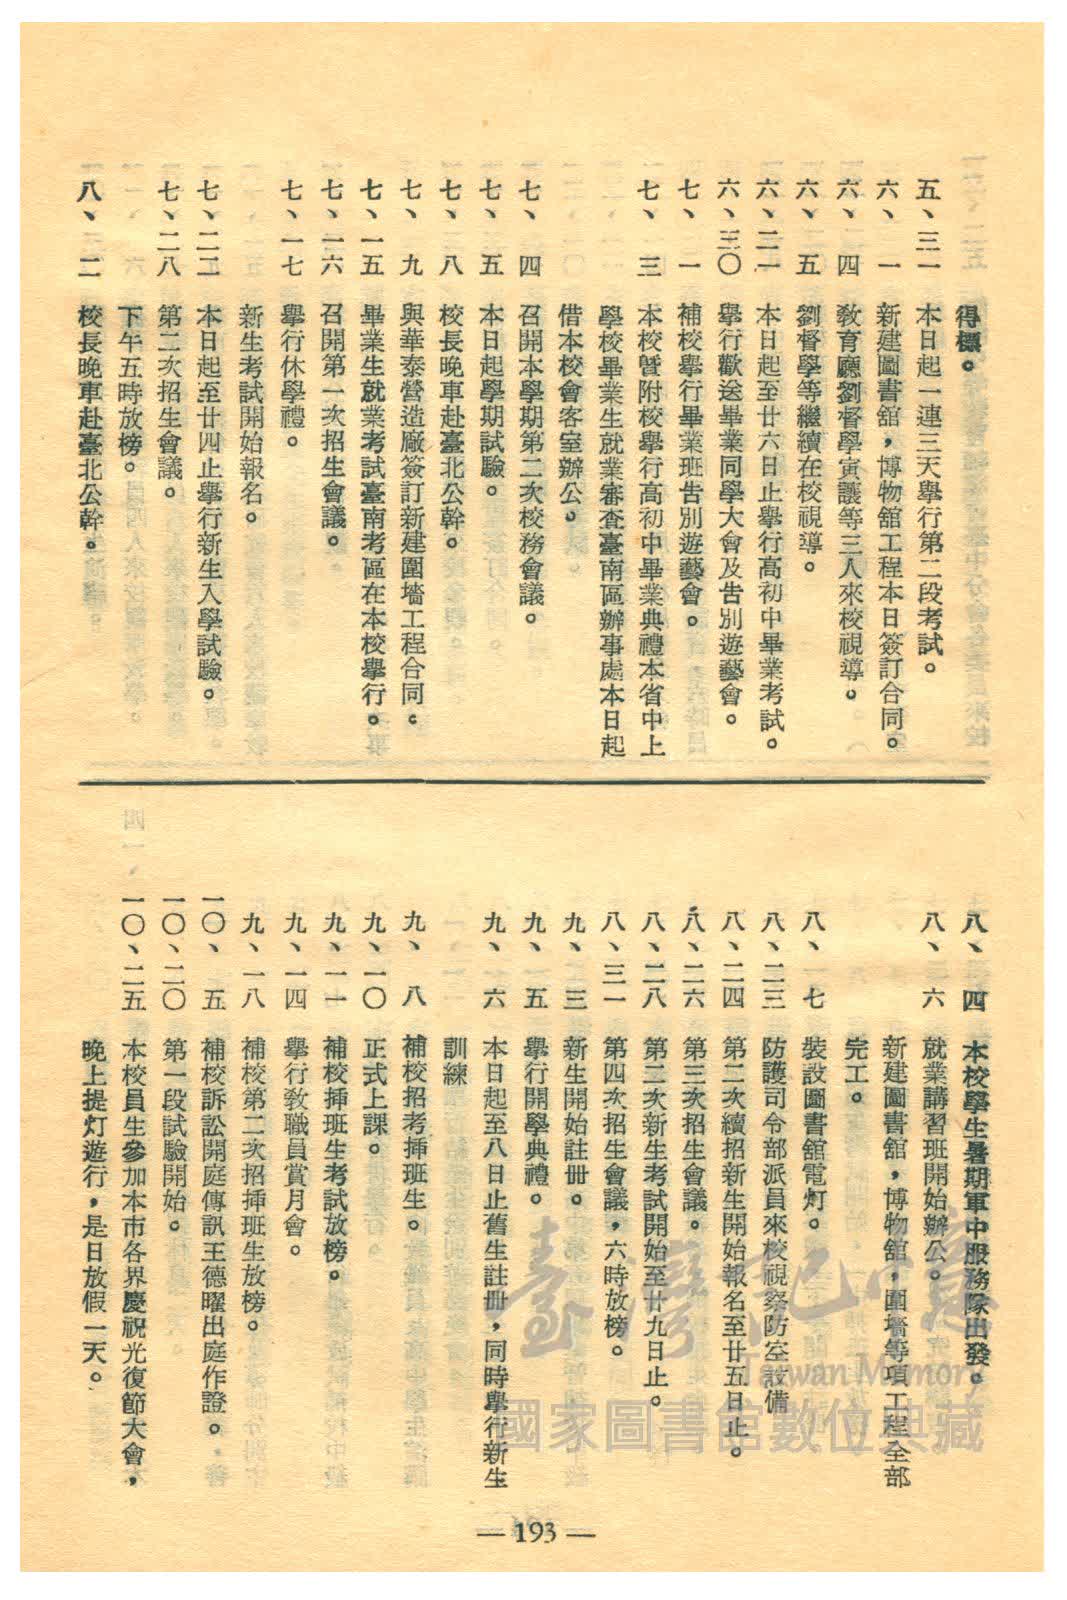 得標。
五、三一　本日起一連三天舉行第二段考試。
六、一　新建圖書舘，博物舘工程本日簽訂合同。
六、四　教育廳劉督學寅議等三人來校視導。
六、五　劉督學等繼續在校視導。
六、二一　本日起至廿六日止舉行高初中畢業考試。
六、三〇　舉行歡送畢業同學大會及告別遊藝會。
七、一　補校舉行畢業班告別遊藝會。
七、三　本校暨附校舉行高初中畢業典禮本省中上
學校畢業生就業審查臺南區辦事處本日起
借本校會客室辦公。
七、四　召開本學期第二次校務會議。
七、五　本日起學期試驗。
七、八　校長晚車赴臺北公幹。
七、九　與華泰營造廠簽訂新建圍墻工程合同。
七、一五　畢業生就業考試臺南考區在本校舉行。
七、一六　召開第一次招生會議。
七、一七　舉行休學禮。
新生考試開始報名。
七、二二　本日起至廿四止舉行新生入學試驗。
七、二八　第二次招生會議。
下午五時放榜。
八、二　校長晚車赴臺北公幹。
八、四　本校學生暑期軍中服務隊出發。
八、六　就業講習班開始辦公。
新建圖書舘，博物舘，圍墻等項工程全部
完工。
八、一七　裝設圖書舘電灯。
八、二三　防護司令部派員來校視察防空設備
八、二四　第二次續招新生開始報名至廿五日止。
八、二六　第三次招生會議。
八、二八　第二次新生考試開始至廿九日止。
八、三一　第四次招生會議，六時放榜。
九、三　新生開始註册。
九、五　舉行開學典禮。
九、六　本日起至八日止舊生註册，同時舉行新生
訓練
九、八　補校招考挿班生。
九、一〇　正式上課。
九、一一　補校挿班生考試放榜。
九、一四　舉行敎職員賞月會。
九、一八　補校第二次招挿班生放榜。
一〇、五　補校訴訟開庭傳訊王德曜出庭作證。
一〇、二〇　第一段試驗開始。
一〇、二五　本校員生參加本市各界慶祝光復節大會，
晚上提灯遊行，是日放假一天。
臺灣記憶
Taiwan Memory
國家圖書館數位典藏
— 193 —